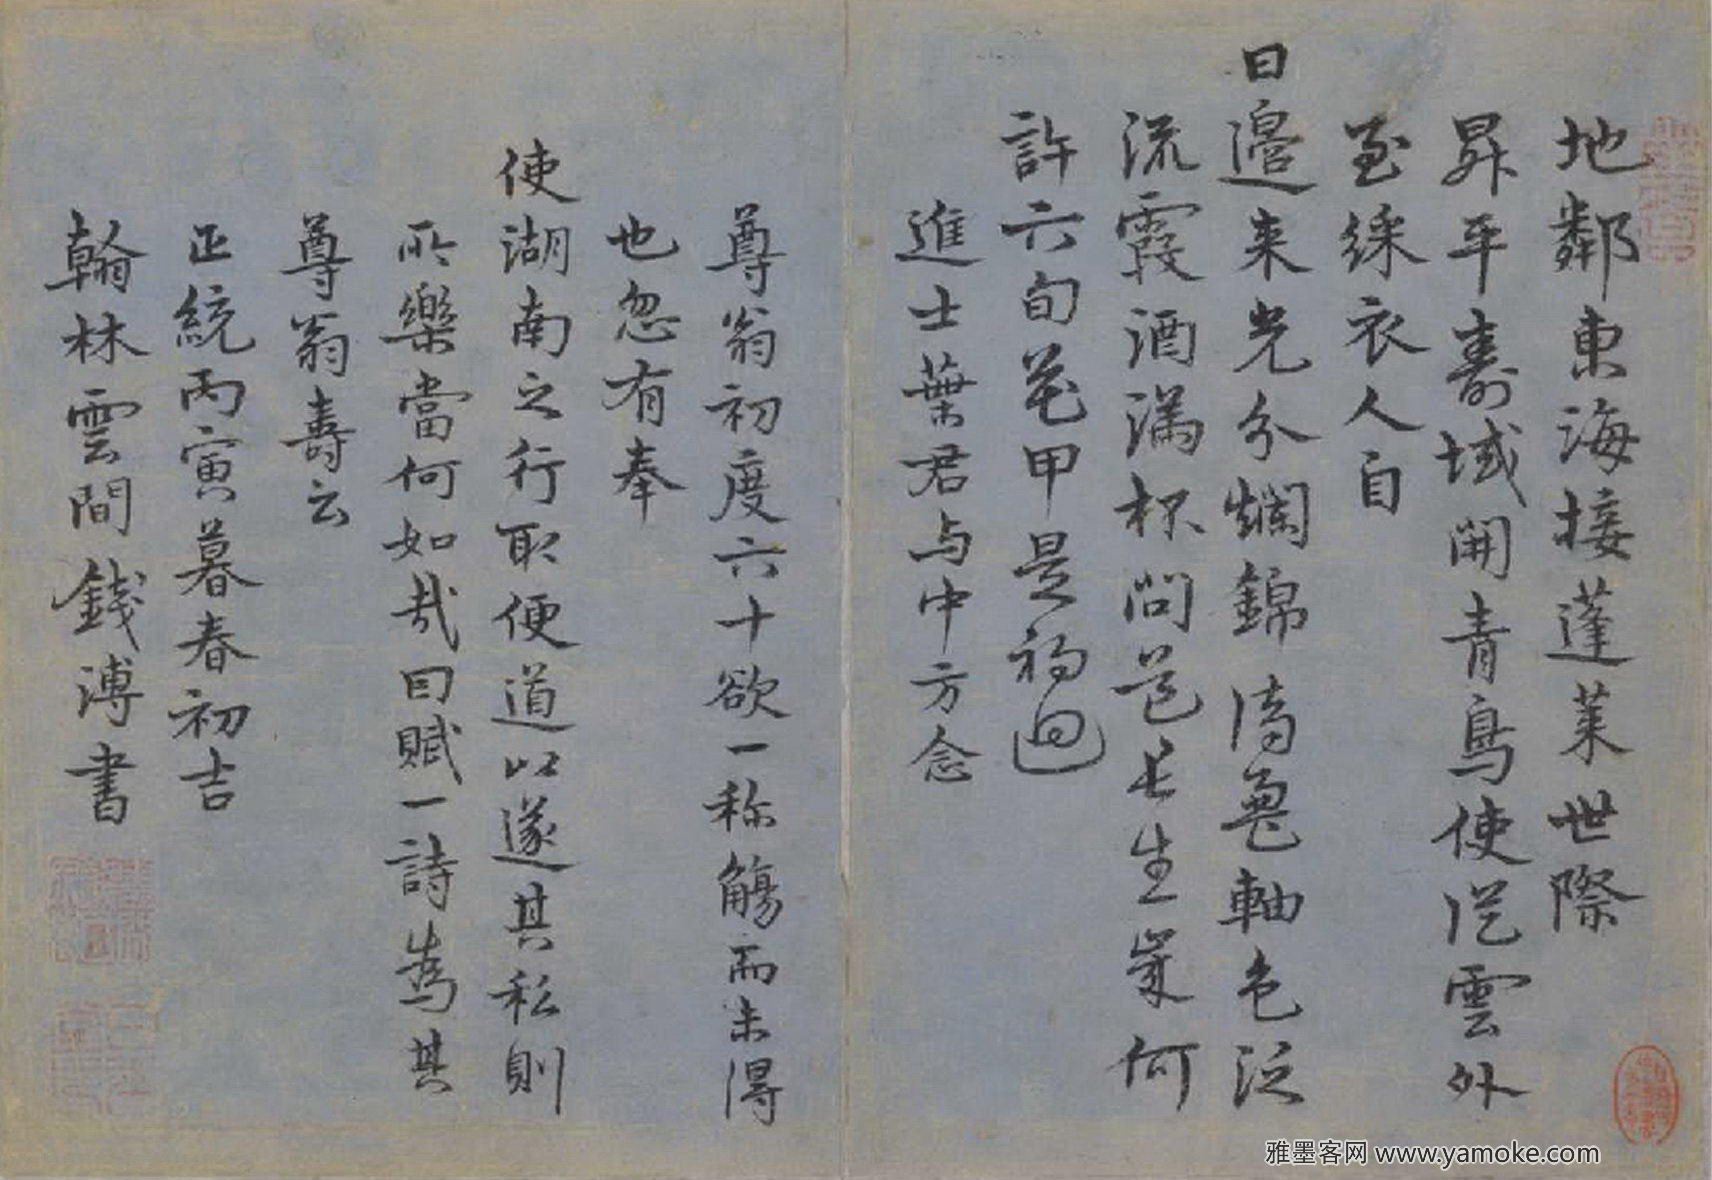 地鄰東海接蓬萊世際
昇平壽域開青鳥使從雲外
至綵衣人自
日邊来光分爛錦 軸色泛
流霞酒滿杯问 長生 何
許六旬花甲是初迴
進士葉君与中方念
尊翁初度六十欲一称觴而未得
也忽有奉
使湖南之行取便道以遂其私則
所樂當何如哉因賦一詩為其
尊翁壽云
正統丙寅暮春初吉
翰林雲間錢溥書
雅墨客网 www.yamoke.com